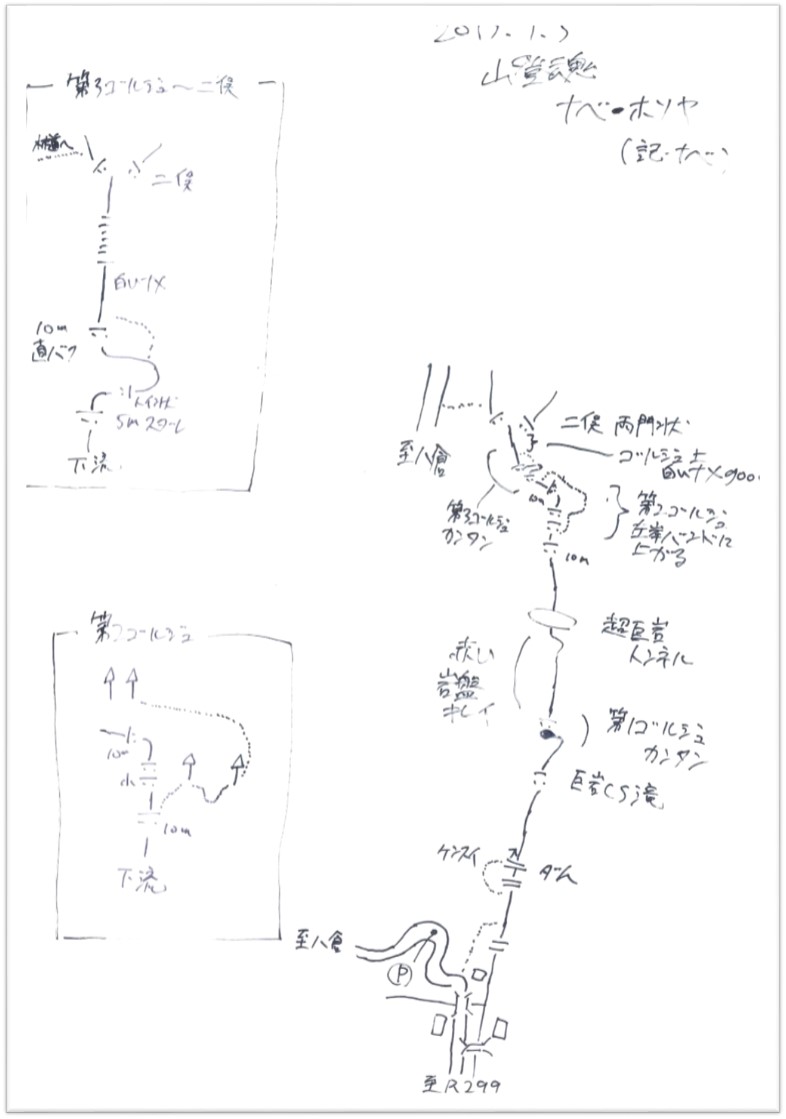 2017.1.3
山登魂
ナベ・ホソヤ
(記・ナベ)
第3ゴルジュ〜二俣
林道へ
二俣
白いナメ
10m
直バク
トイ状
5mスダレ
下流
至八倉
二俣 両門状
ゴルジュ上
白いナメ900
第3ゴルジュ
カンタン
10m
第2ゴルジュ
左岸バンドに
上がる
10m
超巨岩
トンネル
赤い
岩盤
キレイ
第1ゴルジュ
カンタン
巨岩CS滝
ケンスイ
ダム
第2ゴルジュ
10m
小
10m
下流
至八倉
P
至R299